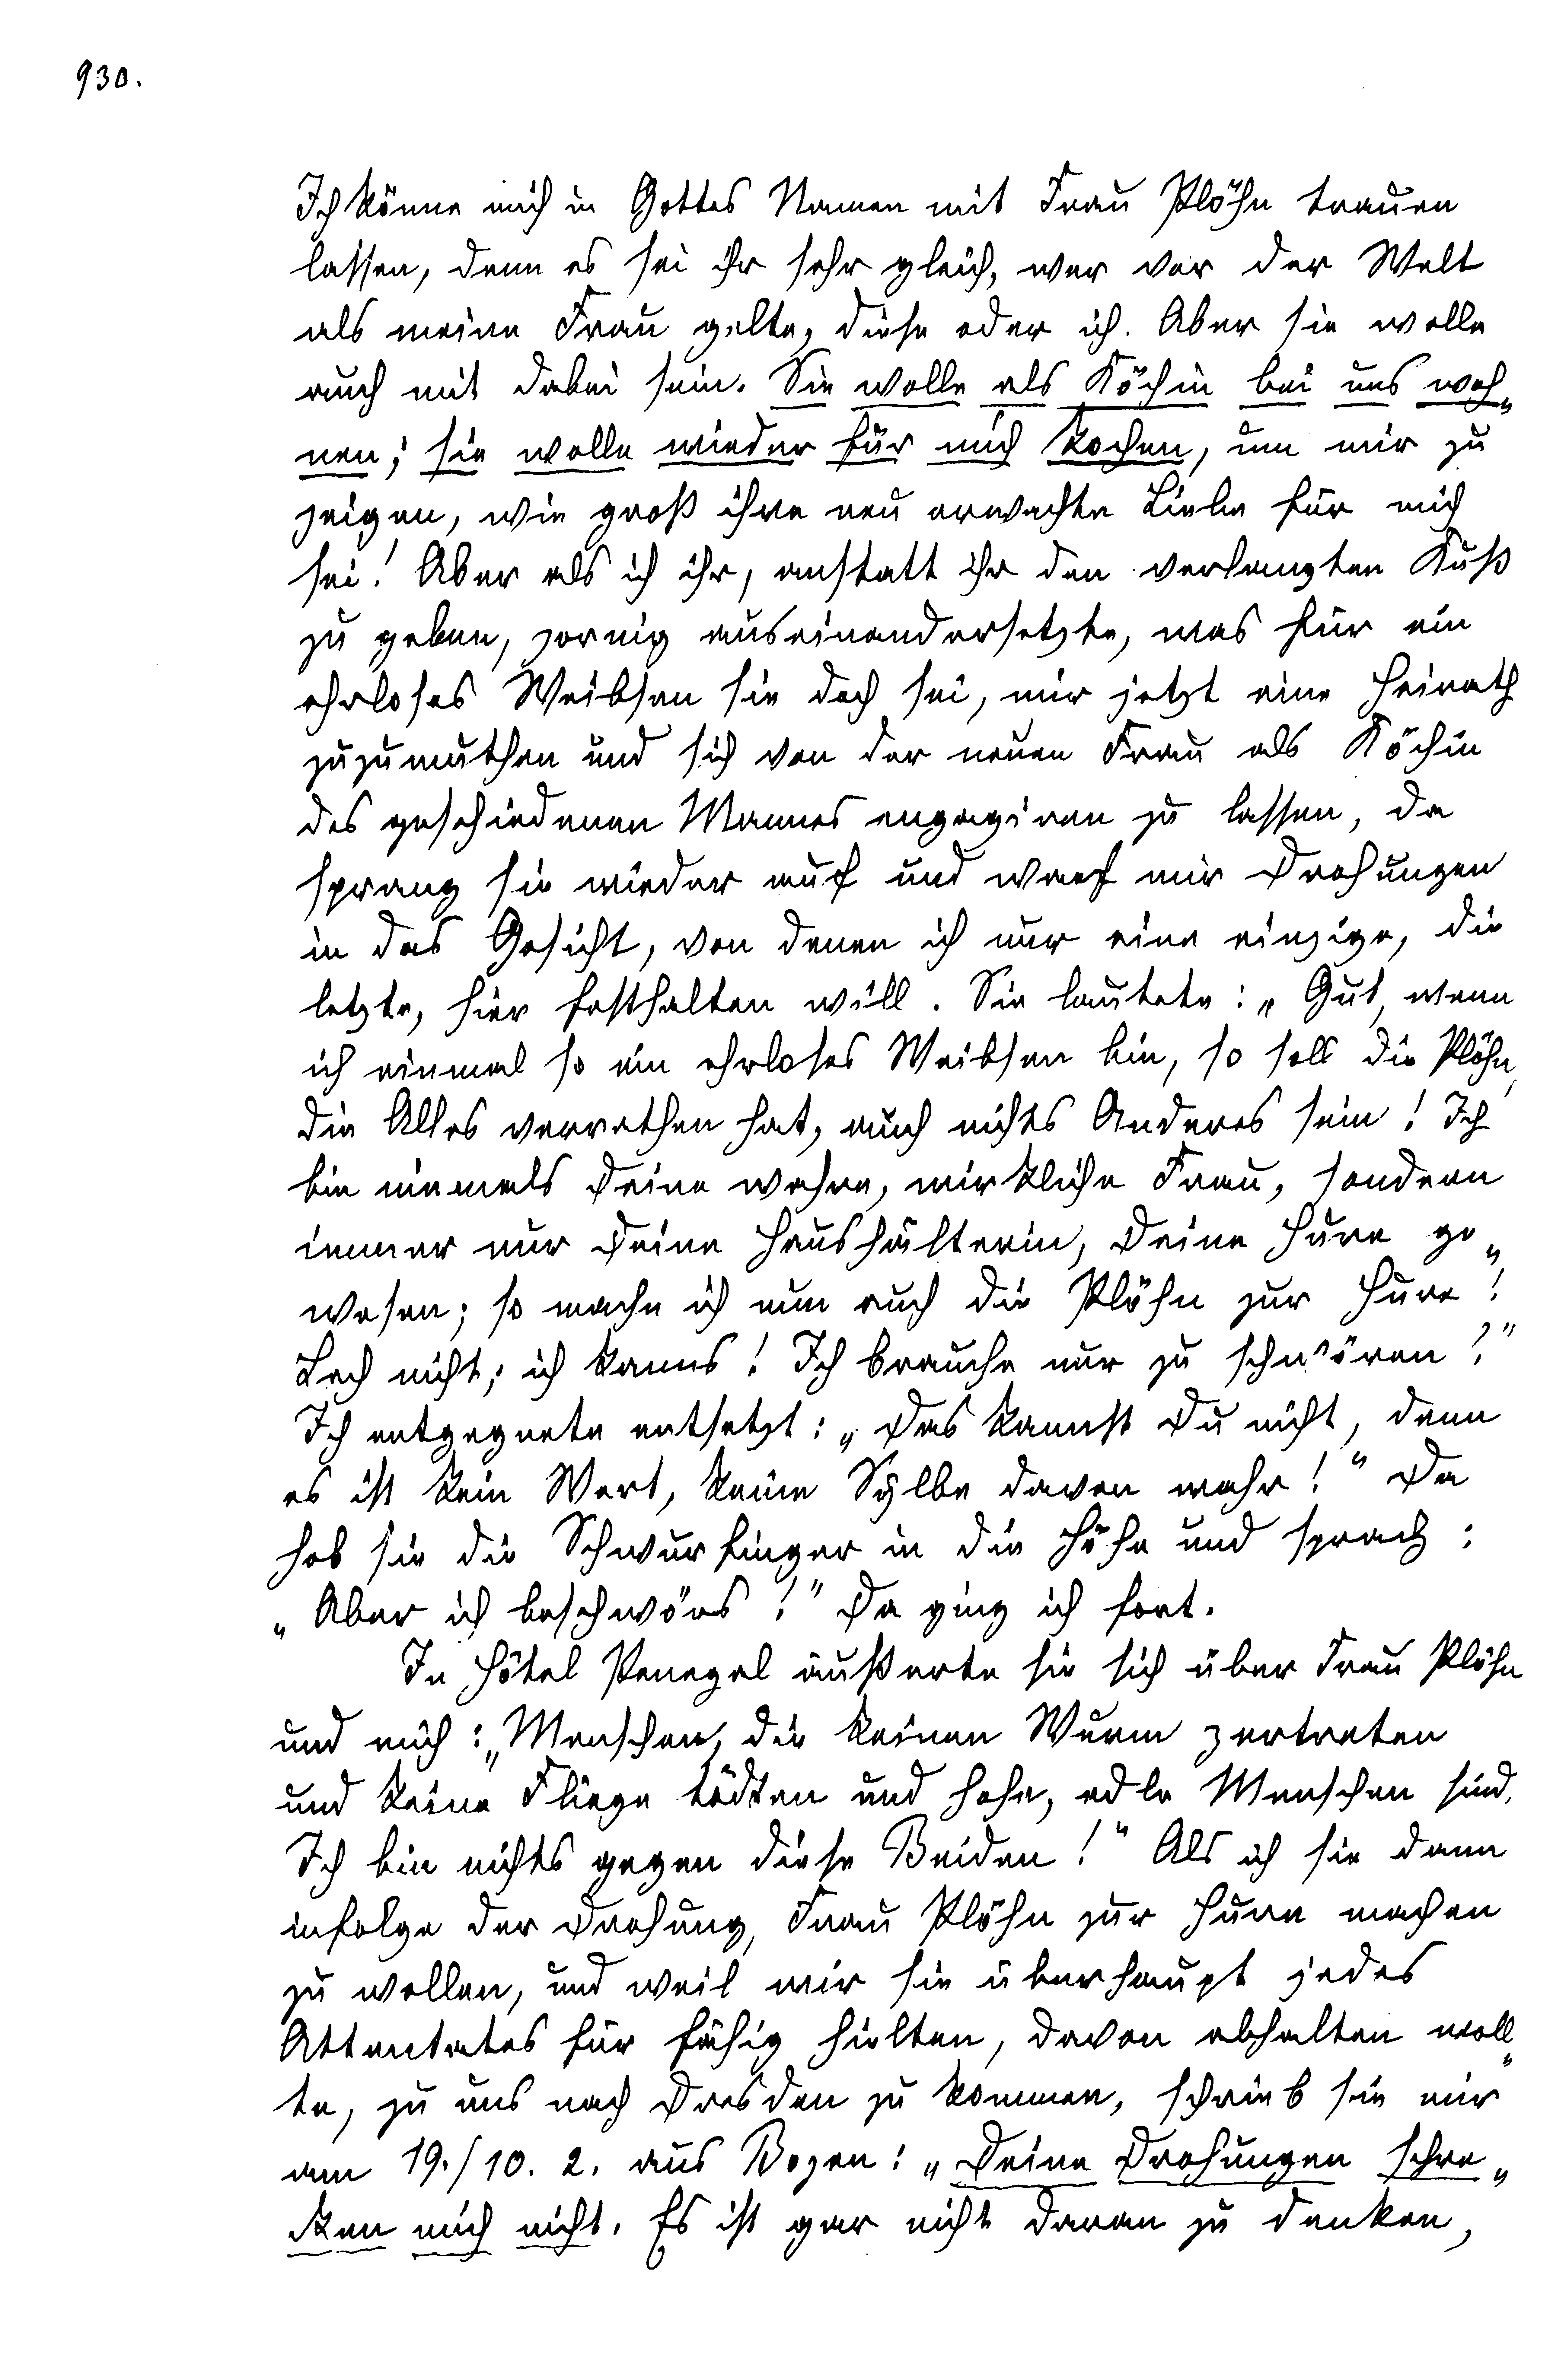 930.
Ich könne mich in Gottes Namen mit Frau Plöhn trauen
lassen, denn es sei ihr sehr gleich, wer vor der Welt
als meine Frau gelte, diese oder ich. Aber sie wolle
auch mit dabei sein. Sie wolle als Köchin bei uns woh„
nen; sie wolle wieder für mich kochen, um mir zu
zeigen, wie groß ihre neu erwachte Liebe für mich
sei! Aber als ich ihr, anstatt ihr den verlangten Kuß
zu geben, zornig auseinandersetzte, was für ein
ehrloses Weibsen sie doch sei, mir jetzt eine Heirath
zuzumuthen und sich von der neuen Frau als Köchin
des geschiedenen Mannes engagiren zu lassen, da
sprang sie wieder auf und warf mir Drohungen
in das Gesicht, von denen ich nur eine einzige, die
letzte, hier festhalten will. Sie lautete: „Gut, wenn
ich einmal so ein ehrloses Weibsen bin, so soll die Plöhn,
die Alles verrathen hat, auch nichts Anderes sein! Ich
bin niemals Deine wahre, wirkliche Frau, sondern
immer nur Deine Haushälterin, Deine Hure ge„
wesen; so mache ich nun auch die Plöhn zur Hure!
Lach nicht; ich kanns! Ich brauche nur zu schwören!"
Ich entgegnete entsetzt: „Das kannst Du nicht, denn
es ist kein Wort, keine Sylbe davon wahr!" Da
hob sie die Schwurfinger in die Höhe und sprach:
„Aber ich beschwörs!" Da ging ich fort.
In Hôtel Penegal äußerte sie sich über Frau Plöhn
und mich: „Menschen, die keinen Wurm zertreten
und keine Fliege tödten und hohe, edle Menschen sind.
Ich bin nichts gegen diese Beiden!" Als ich sie dann
infolge der Drohung, Frau Plöhn zur Hure machen
zu wollen, und weil wir sie überhaupt jedes
Attentates für fähig hielten, davon abhalten woll„
te, zu uns nach Dresden zu kommen, schrieb sie mir
am 19./10. 2. aus Bozen: „Deine Drohungen schre„
cken mich nicht. Es ist gar nicht daran zu denken,